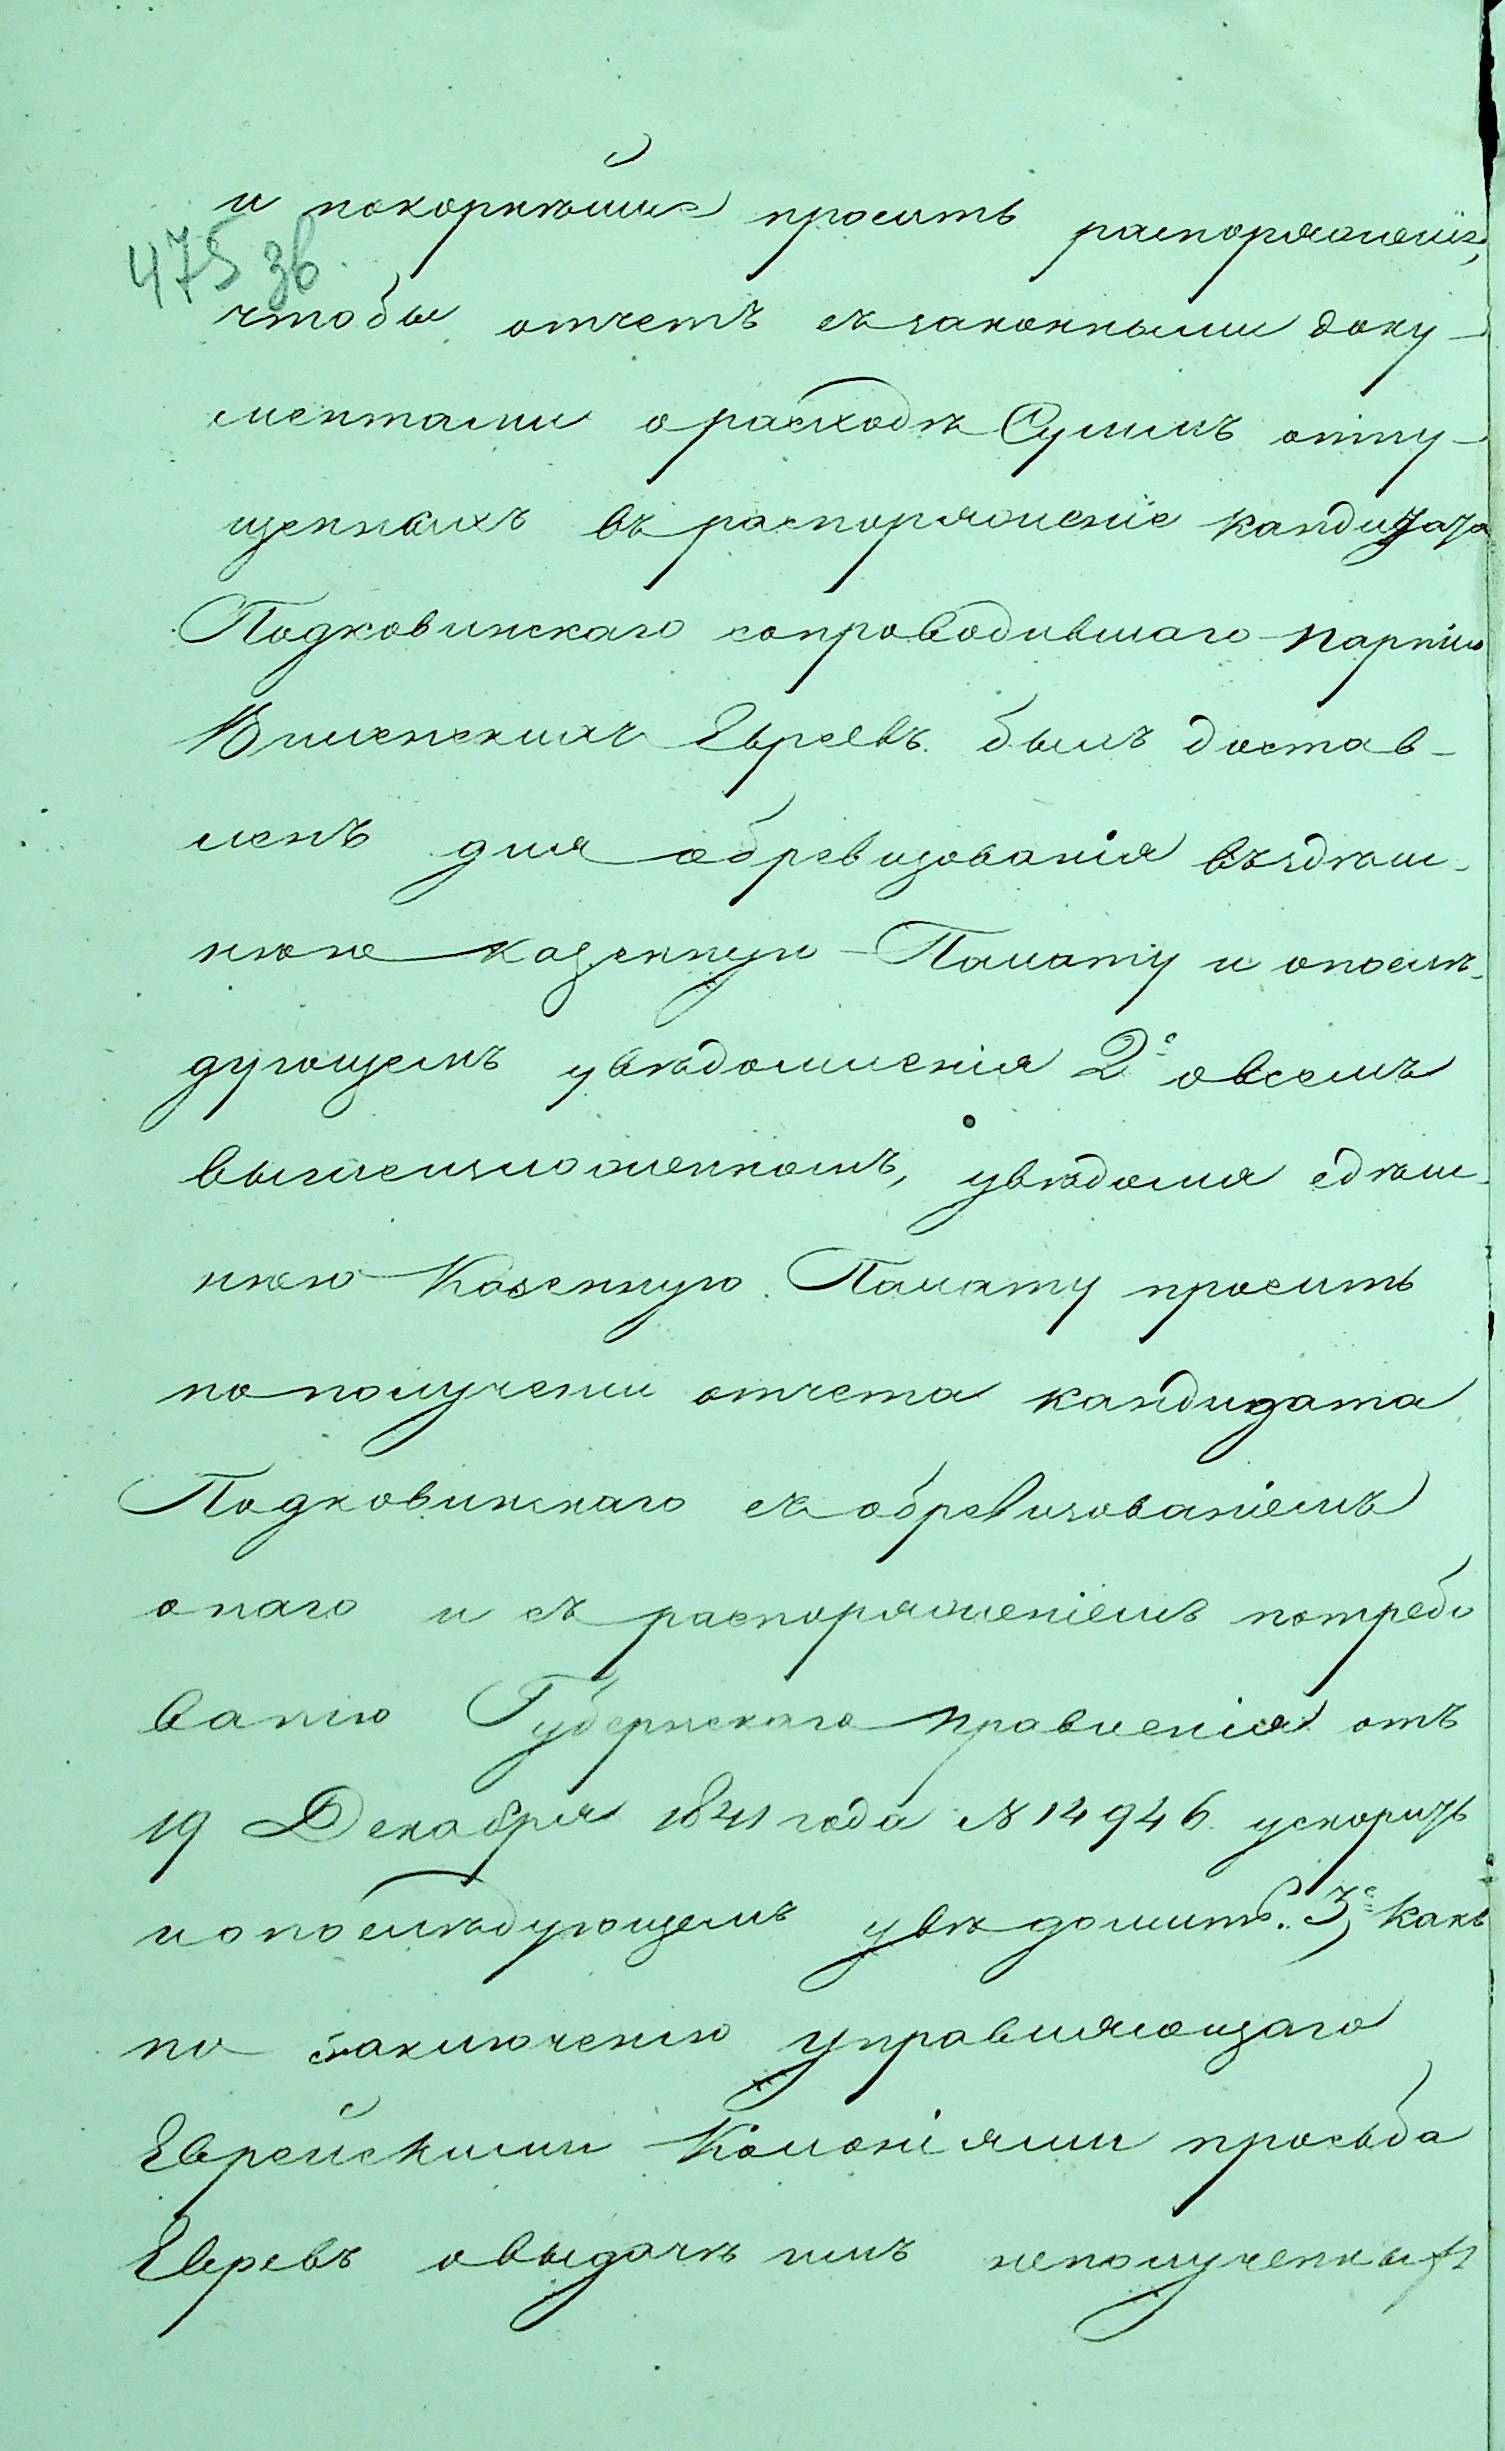 и покорнѣйше просить распоряженія,
475 зв.
чтобы отчетъ съ законными доку-
ментами о расходѣ Суммъ отпу-
щенныхъ въ распоряженіе кандидата
Подковинскаго сопроводившаго партію
Виленскихъ Евреевъ былъ достав-
ленъ для обревизованія въ здѣш-
нюю казенную Палату и о послѣ-
дующемъ увѣдомленія 2е о всемъ
вышеизложенномъ, увѣдомя здѣш-
нюю Казенную Палату просить
по полученіи отчета кандидата
Подковинскаго съ обревизованіемъ
онаго и съ распоряженіемъ по требо
ванію Губернскаго правленія отъ
19 Декабря 1841 года № 14946. ускорить
и о послѣдующемъ увѣдомить. 3е, Какъ
по заключенію управляющаго
Еврейскими Колоніями просьба
Евревъ о выдачѣ имъ неполученных